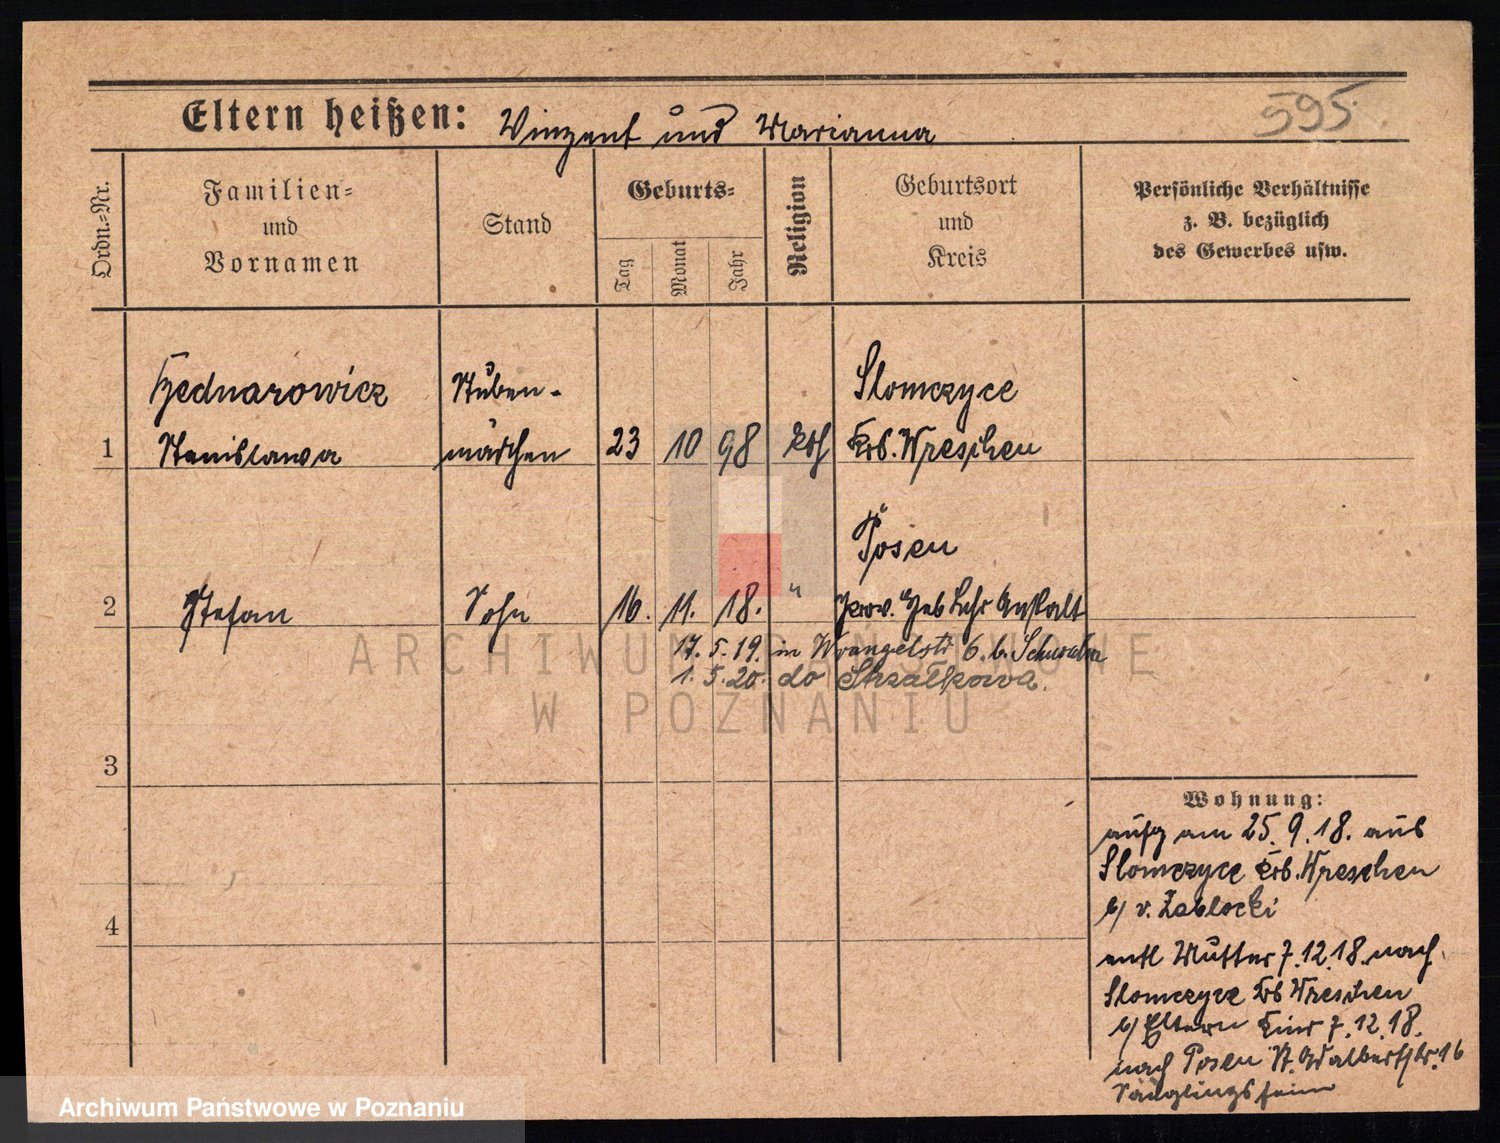 595.
Eltern heißen: Vinzent und Marianna
Ordn.=Nr.
Familien=
und
Vornamen
Stand
Geburts=
Tag
Monat
Jahr
Religion
Geburtsort
und
Kreis
Persönliche Verhältnisse
z. B. bezüglich
des Gewerbes usw.
Bednarowicz Stuben- Slomczyce
1 Stanislawa mädchen 23 10 98 kth Krs. Wreschen
Posen
2 Stefan Sohn 16. 11. 18. " Prov. Heb Lehr Anstalt
17. 5. 19. in Wrangelstr 6. b.
1. 5. 20. do Strzałkowa.
3
4
Wohnung:
aufg am 25. 9. 18. aus
Slomczyce Krs. Wreschen
b/ v. Zablocki
entl Mutter 7. 12. 18. nach
Slomczyce Krs Wreschen
b/ Eltern Kind 7. 12. 18.
nach Posen St. Adalbertstr. 16
Säuglingsheim
ARCHIWUM PAŃSTWOWE
W POZNANIU
Archiwum Państwowe w Poznaniu